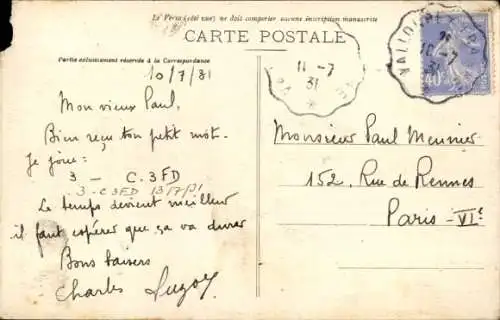 Le Verso (côté vue) ne doit comporter aucune inscription manuscrite
CARTE POSTALE
Partie exclusivement réservée à la Correspondance
10/7/31
Mon vieux Paul,
Bien reçu ton petit mot.
Je joue :
3 - C. 3FD
3 - C3FD 13/7/31
Le temps devient meilleur
il faut espérer que ça va durer
Bons baisers
Charles
11-7
31
VALLOIRE
40
Monsieur Paul Meunier
152, Rue de Rennes
Paris - VIe